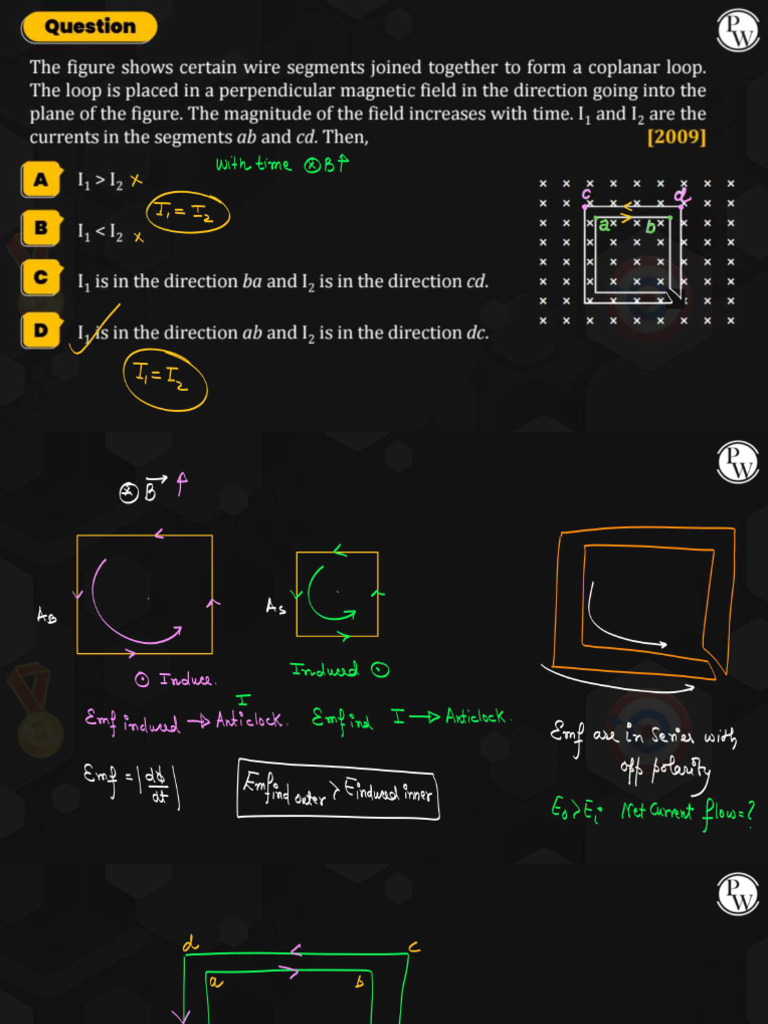 Question
PW
The figure shows certain wire segments joined together to form a coplanar loop.
The loop is placed in a perpendicular magnetic field in the direction going into the
plane of the figure. The magnitude of the field increases with time. I₁ and I₂ are the
currents in the segments ab and cd. Then, [2009]
with time ⊗B↑
A I₁ > I₂ ×
I₁ = I₂
B I₁ < I₂ ×
C I₁ is in the direction ba and I₂ is in the direction cd.
D I₁ is in the direction ab and I₂ is in the direction dc.
I₁ = I₂
c d
a b
PW
⊗ B→ ↑
A_B
A_S
⊙ Induce.
Induced ⊙
Emf induced → I Anticlock.
Emf ind I → Anticlock.
Emf = |dϕ/dt|
Emf ind outer > E induced inner
Emf are in series with
opp polarity
E₀ > Eᵢ Net Current flow = ?
PW
d c
a b